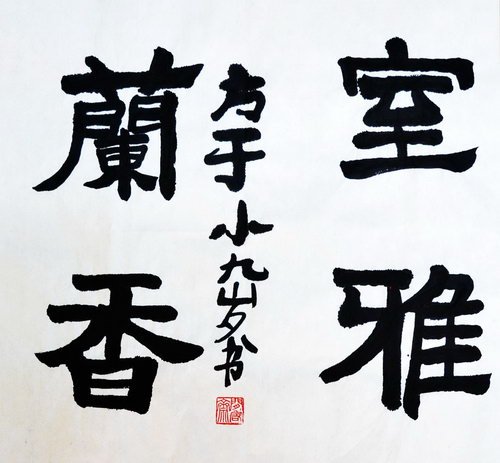 室雅
方于小九岁书
蘭香